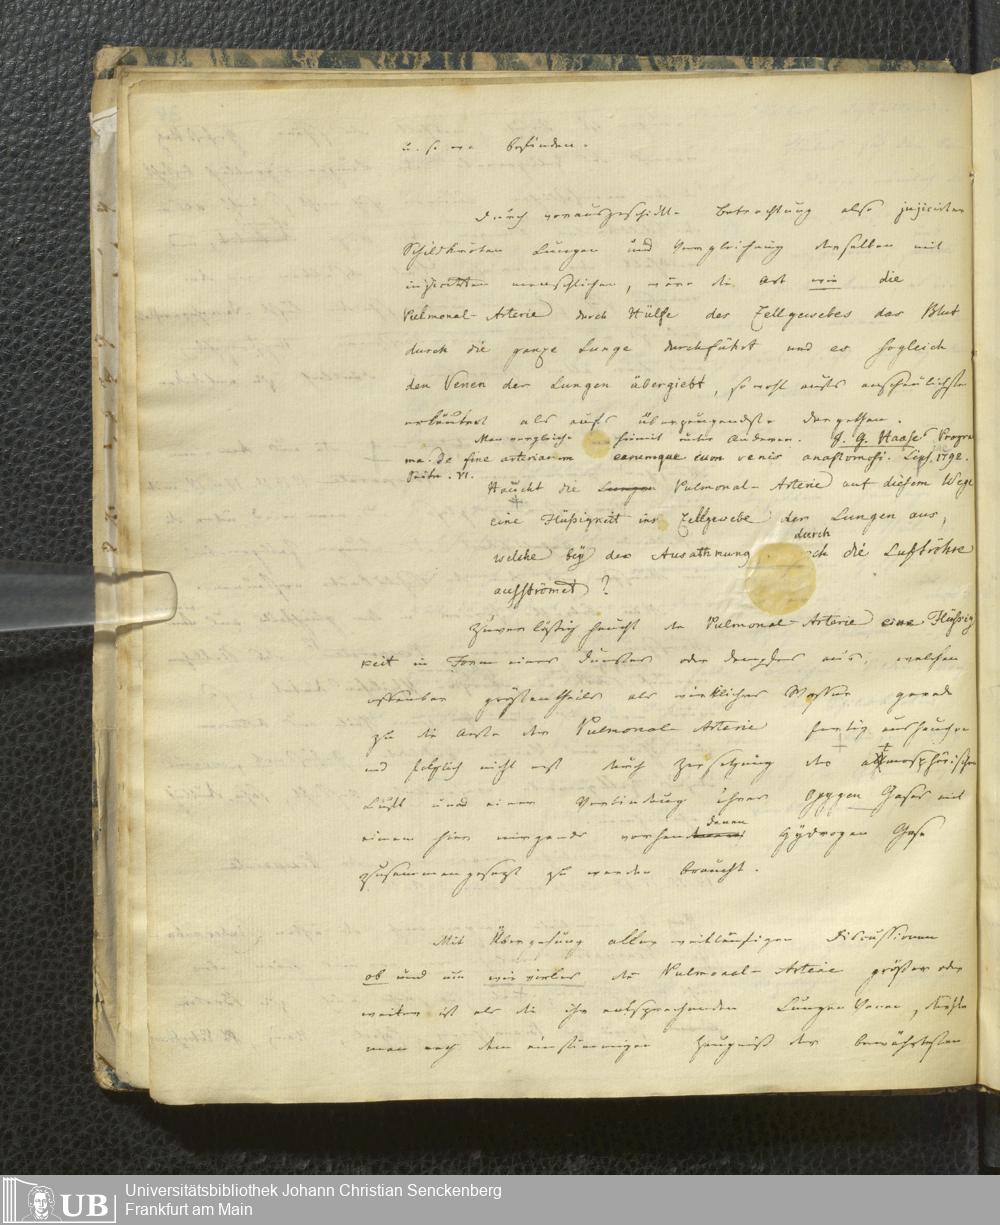 u. s. w. befinden.
Durch vorausgeschickte Betrachtung also injicirter
Schildkröten Lungen und Vergleichung derselben mit
injicirten menschlichen, wäre die Art wie die
Pulmonal-Arterie durch Hülfe des Zellgewebes das Blut
durch die ganze Lunge durchführt und es sogleich
den Venen der Lungen übergiebt, sowohl aufs anschaulichste
erläutert als aufs überzeugendste dargethan.
Man vergleiche hiemit unter anderen. J. G. Haase Progra
ma. de fine arteriarum earumque cum venis anastomosi. Lips. 1792.
Seite. VI.
Haucht die Lungen Pulmonal-Arterie auf diesem Wege
eine Flüßigkeit ins Zellgewebe der Lungen aus,
welche bey der Ausathmung durch die Luftröhre
ausströmet?
Zuverläßig haucht die Pulmonal-Arterie eine Flüßig
keit in Form eines Dunstes oder Dampfes aus, welcher
offenbar größtentheils als wirkliches Wasser gerade
zu die Aeste der Pulmonal-Arterie fertig aushauchen
und folglich nicht erst durch Zersetzung der atmosphärischen
Luft und einer Verbindung ihres Oxygen Gases mit
einem hier nirgends vorhandenen Hydrogen Gase
zusammengesezt zu werden braucht.
Mit Übergehung aller weitläufigen Discussionen
ob und um wie vieles die Pulmonal-Arterie größer oder
weiter ist als die ihr entsprechenden Lungen Venen,
man nach dem einstimmigen Zeugniß der bewährtesten
Universitätsbibliothek Johann Christian Senckenberg
Frankfurt am Main
UB